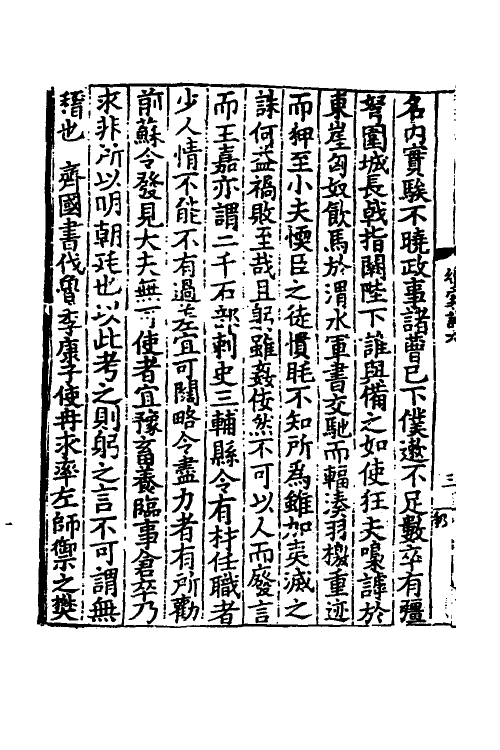 名内實騃不曉政事諸曹已下僕遬不足數卒有彊
弩圍城長戟指闕陛下誰與備之如使狂夫嘄謼於
東崖匈奴飲馬於渭水軍書交馳而輻湊羽檄重迹
而狎至小夫愞臣之徒憒眊不知所為雖加夷滅之
誅何益禍敗至哉且躬雖姦佞然不可以人而廢言
而王嘉亦謂二千石部刺史三輔縣令有材任職者
少人情不能不有過差宜可闊略令盡力者有所勸
前蘇令發見大夫無可使者宜豫畜養臨事倉卒乃
求非所以明朝廷也以此考之則躬之言不可謂無
稽也　齊國書伐魯季康子使冉求率左師禦之樊